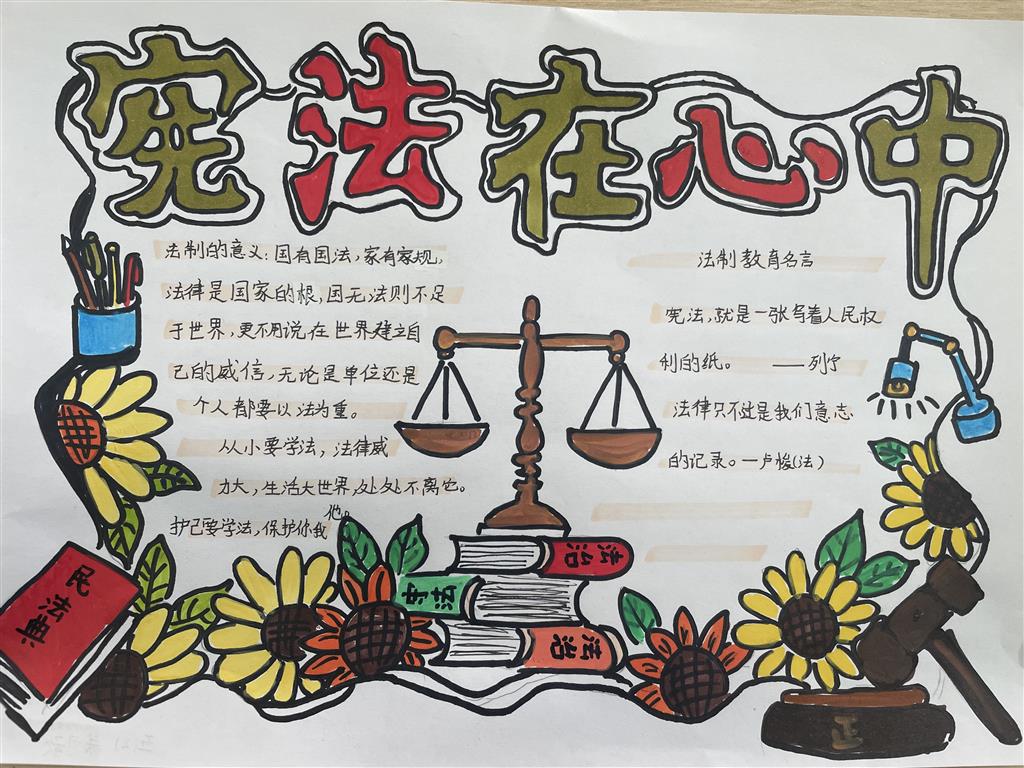 宪法在心中
法制的意义：国有国法，家有家规，
法律是国家的根，国无法则不足
于世界，更不用说在世界建立自
己的威信，无论是单位还是
个人都要以法为重。
从小要学法，法律威
力大，生活大世界，处处不离它。
护己要学法，保护你我
他。
法制教育名言
宪法，就是一张写着人民权
利的纸。 ——列宁
法律只不过是我们意志
的记录。—卢梭（法）
民法典
法治
法治